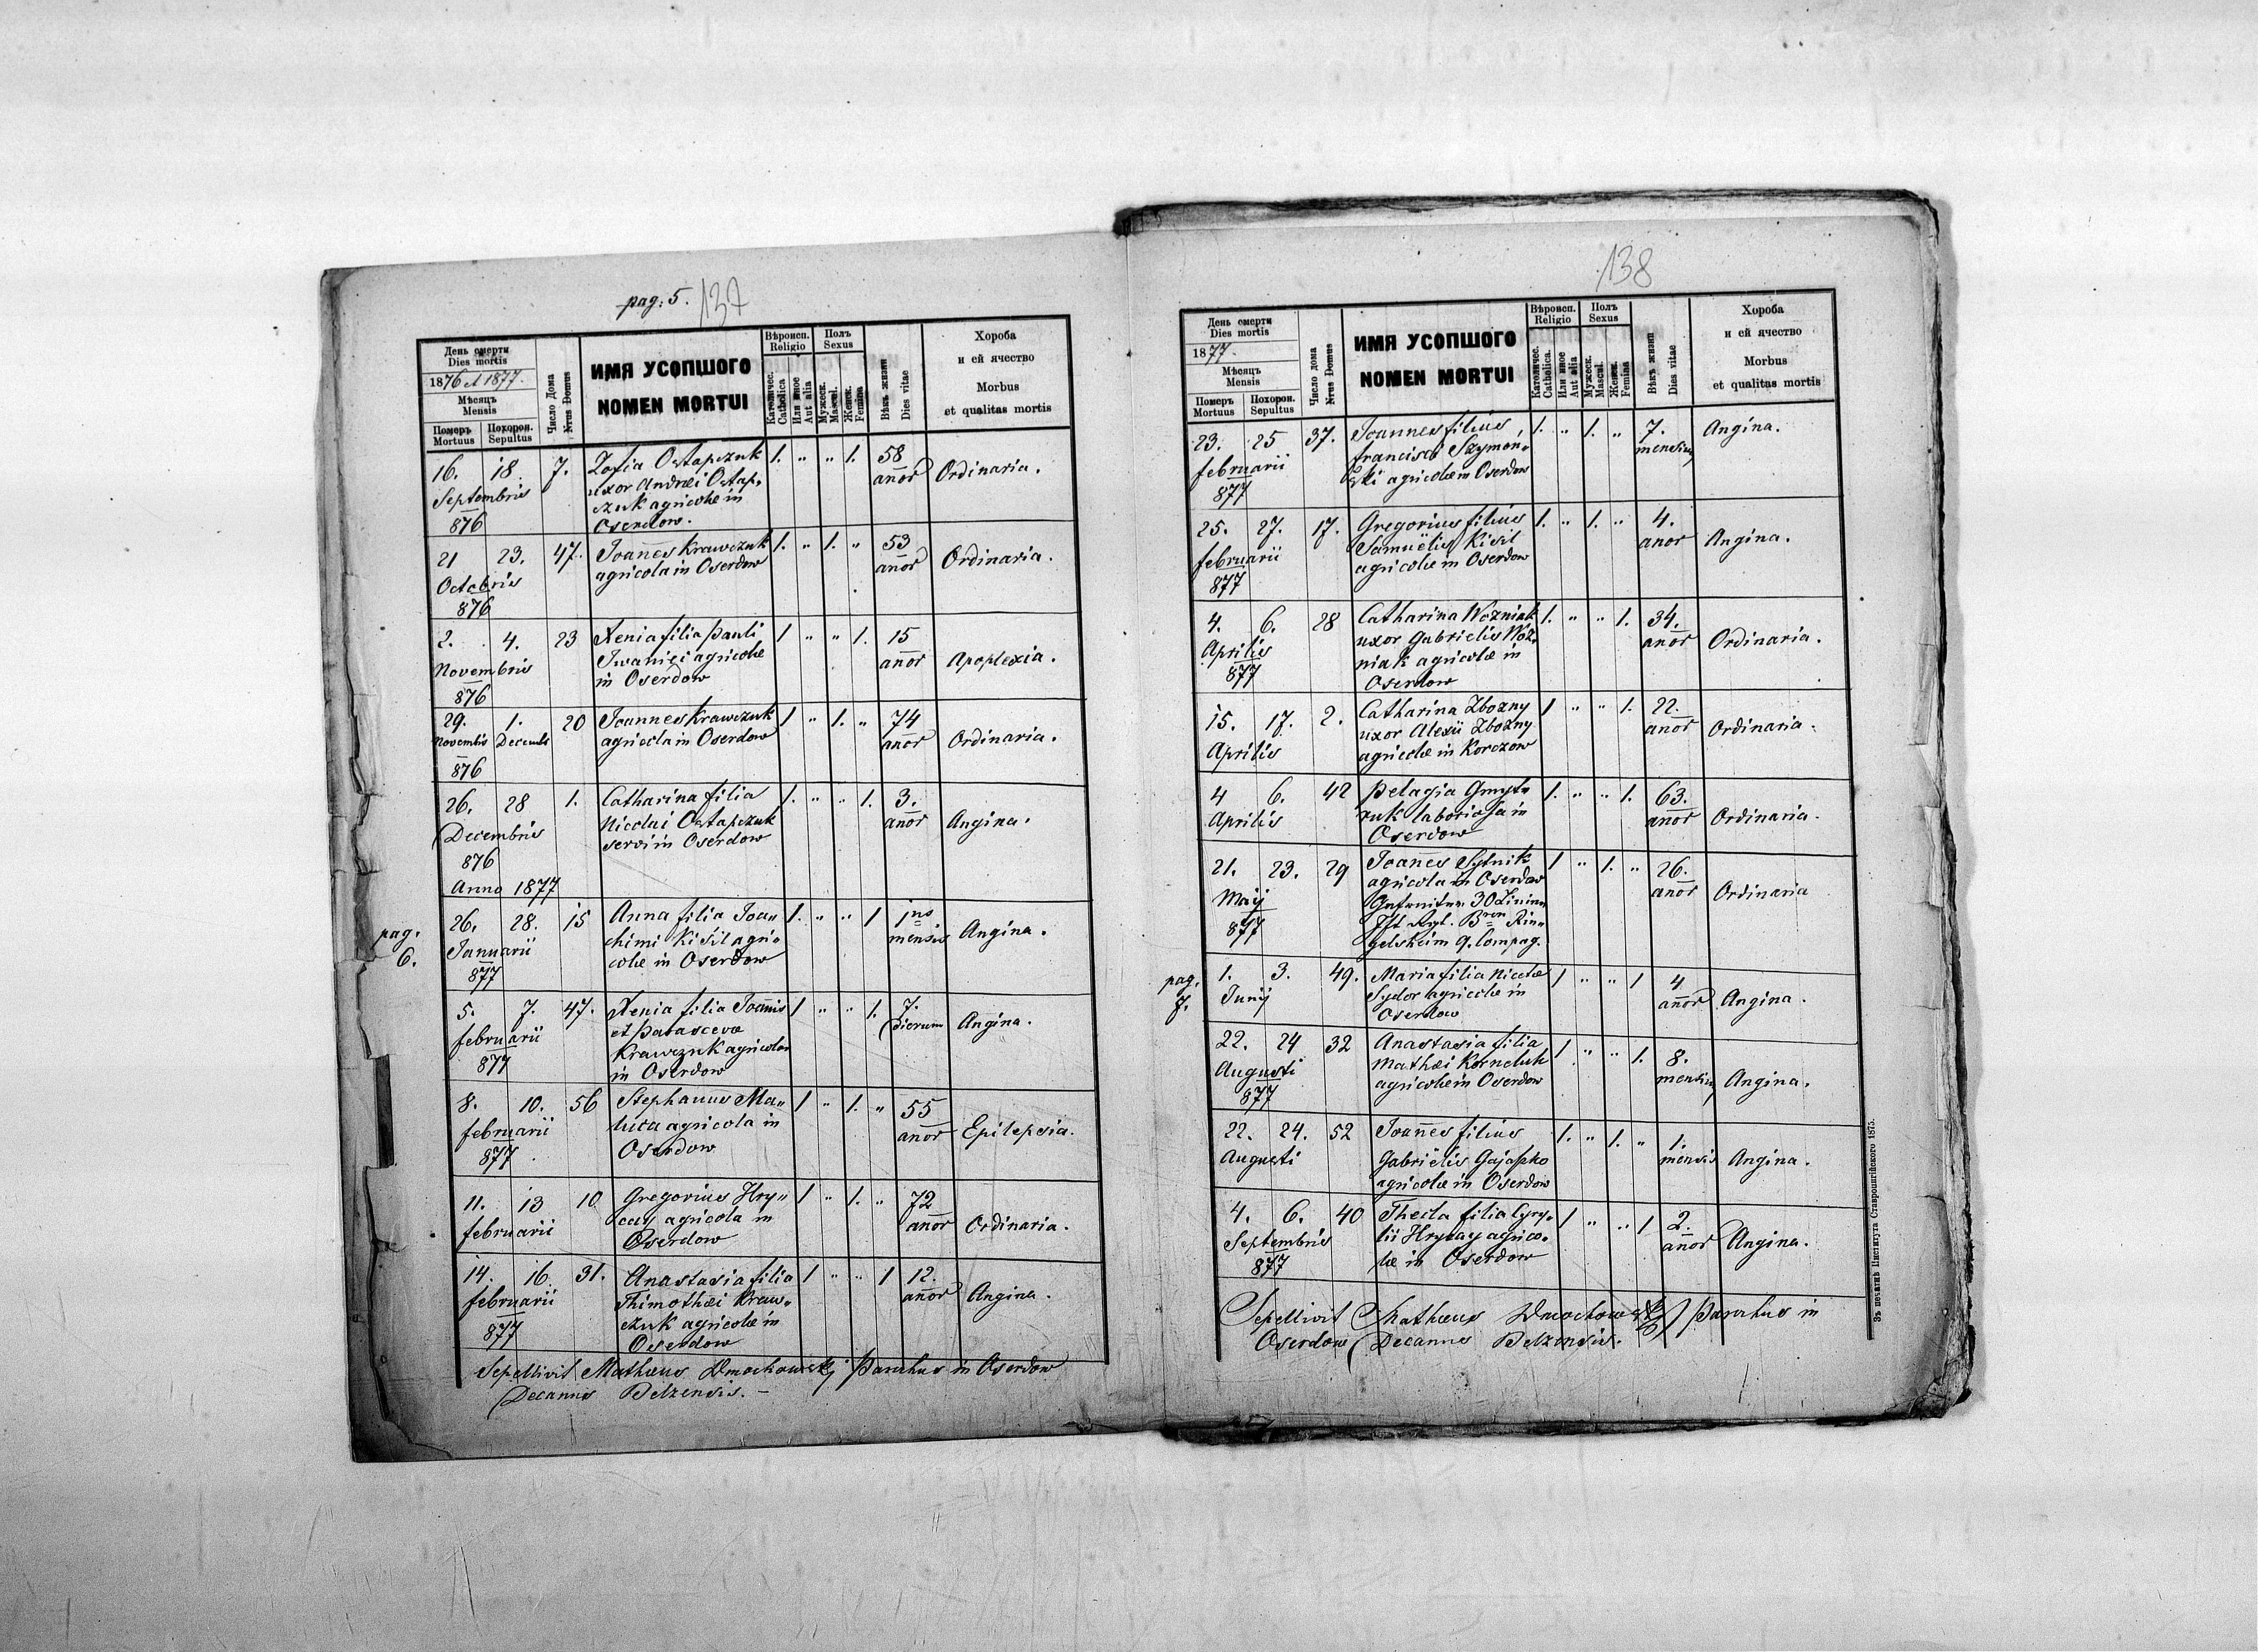 pag: 5. 137
День смерти
Dies mortis
1876 et 1877.
Мѣсяцъ
Mensis
Померъ Похорон.
Mortuus Sepultus
Число Дома
Nrus Domus
ИМЯ УСОПШОГО
NOMEN MORTUI
Вѣроисп.
Religio
Католичес.
Catholica
Или иное
Aut alia
Полъ
Sexus
Мужеск.
Mascul.
Женск.
Femina
Вѣкъ жизни
Dies vitae
Хороба
и ей ячество
Morbus
et qualitas mortis
16. 18. 7. Zofia Ostapczuk 1. " " 1. 58
Septembris uxor Andrei Ostap- anor Ordinaria.
876 czuk agricolae in
Oserdow.
21 23. 47. Joannes Krawczuk 1. " 1. " 53
Octobris agricola in Oserdow anor Ordinaria.
876
2. 4. 23 Xenia filia Pauli 1 " " 1. 15
Novembris agricolae anor Apoplexia.
876 in Oserdow
29. 1. 20 Joannes Krawczuk 1 " 1. " 74
Novembris Decembr agricola in Oserdow anor Ordinaria.
876
26. 28 1. Catharina filia 1. " " 1. 3.
Decembris Nicolai Ostapczuk anor Angina.
876 servi in Oserdow
Anno 1877
pag. 6.
26. 28. 15 Anna filia Joa- 1. " " 1 1ns
Januarii chimi Kisil agri- mensis Angina.
877 colae in Oserdow
5. 7. 47. Xenia filia Joannis 1 " " 1. 7.
februarii et Parasceva dierum Angina.
877 Krawczuk agricolar
in Oserdow
8. 10. 56 Stephanus Ma- 1 " 1. " 55
februarii agricola in anor Epilepsia.
877. Oserdow
11. 13 10 Gregorius Hry- 1 " 1. " 72
februarii cay agricola in anor Ordinaria.
Oserdow
14. 16. 31. Anastasia filia 1 " " 1 12.
februarii Thimothei Kraw- anor Angina.
877 czuk agricolae in
Oserdow
Sepellivit Mathaeus Dmochowskj Parochus in Oserdow
Decanus Belzensis. –
138
День смерти
Dies mortis
1877.
Мѣсяцъ
Mensis
Померъ Похорон.
Mortuus Sepultus
Число дома
Nrus Domus
ИМЯ УСОПШОГО
NOMEN MORTUI
Вѣроисп.
Religio
Католичес.
Catholica.
Или иное
Aut alia
Полъ
Sexus
Мужеск.
Mascul.
Женск.
Femina
Вѣкъ жизни
Dies vitae
Хороба
и ей ячество
Morbus
et qualitas mortis
23. 25 37. Joannes filius 1. " 1. " 7. Angina.
februarii francisci Szymon- mensium
877 ski agricolae in Oserdow
25. 27. 17. Gregorius filius 1. " 1. " 4.
februarii Samuelis Kisil anor Angina.
877 agricolae in Oserdow
4. 6. 28 Catharina Wozniak 1. " " 1. 34.
Aprilis uxor Gabrielis Woz- anor Ordinaria.
877 niak agricolae in
Oserdow
15. 17. 2. Catharina Zbozny 1 " " 1. 22.
Aprilis uxor Alexii Zbozny anor Ordinaria.
agricolae in Korczow
4 6. 42 Pelagia Gmyt- 1. " " 1. 63.
Aprilis ruk laboriosa in anor Ordinaria.
Oserdow
21. 23. 29 Joanes Sytnik 1 " 1. " 26.
Maij agricola in Oserdow anor Ordinaria
877 30 Linien
Bron Rin-
gelsheim 9. Compag.
pag. 7.
1. 3. 49. Maria filia 1 " " 1 4
Junij Sydor agricolae in anor Angina.
Oserdow
22. 24 32 Anastasia filia 1 " " 1. 8.
Augusti Mathei Korneluk mensium Angina.
877 agricolae in Oserdow
22. 24. 52 Joannes filius 1. " 1. " 1.
Augusti Gabrielis mensis Angina.
agricolae in Oserdow
4. 6. 40 Thecla filia Cyry- 1 " " 1 2.
Septembris lii Hrycay agrico- anor Angina.
877 lae in Oserdow
Sepellivit Mathaeus Dmochowskj Parochus in
Oserdow Decanus Belzensis.
Зъ печатнѣ Института Ставропигійского 1875.